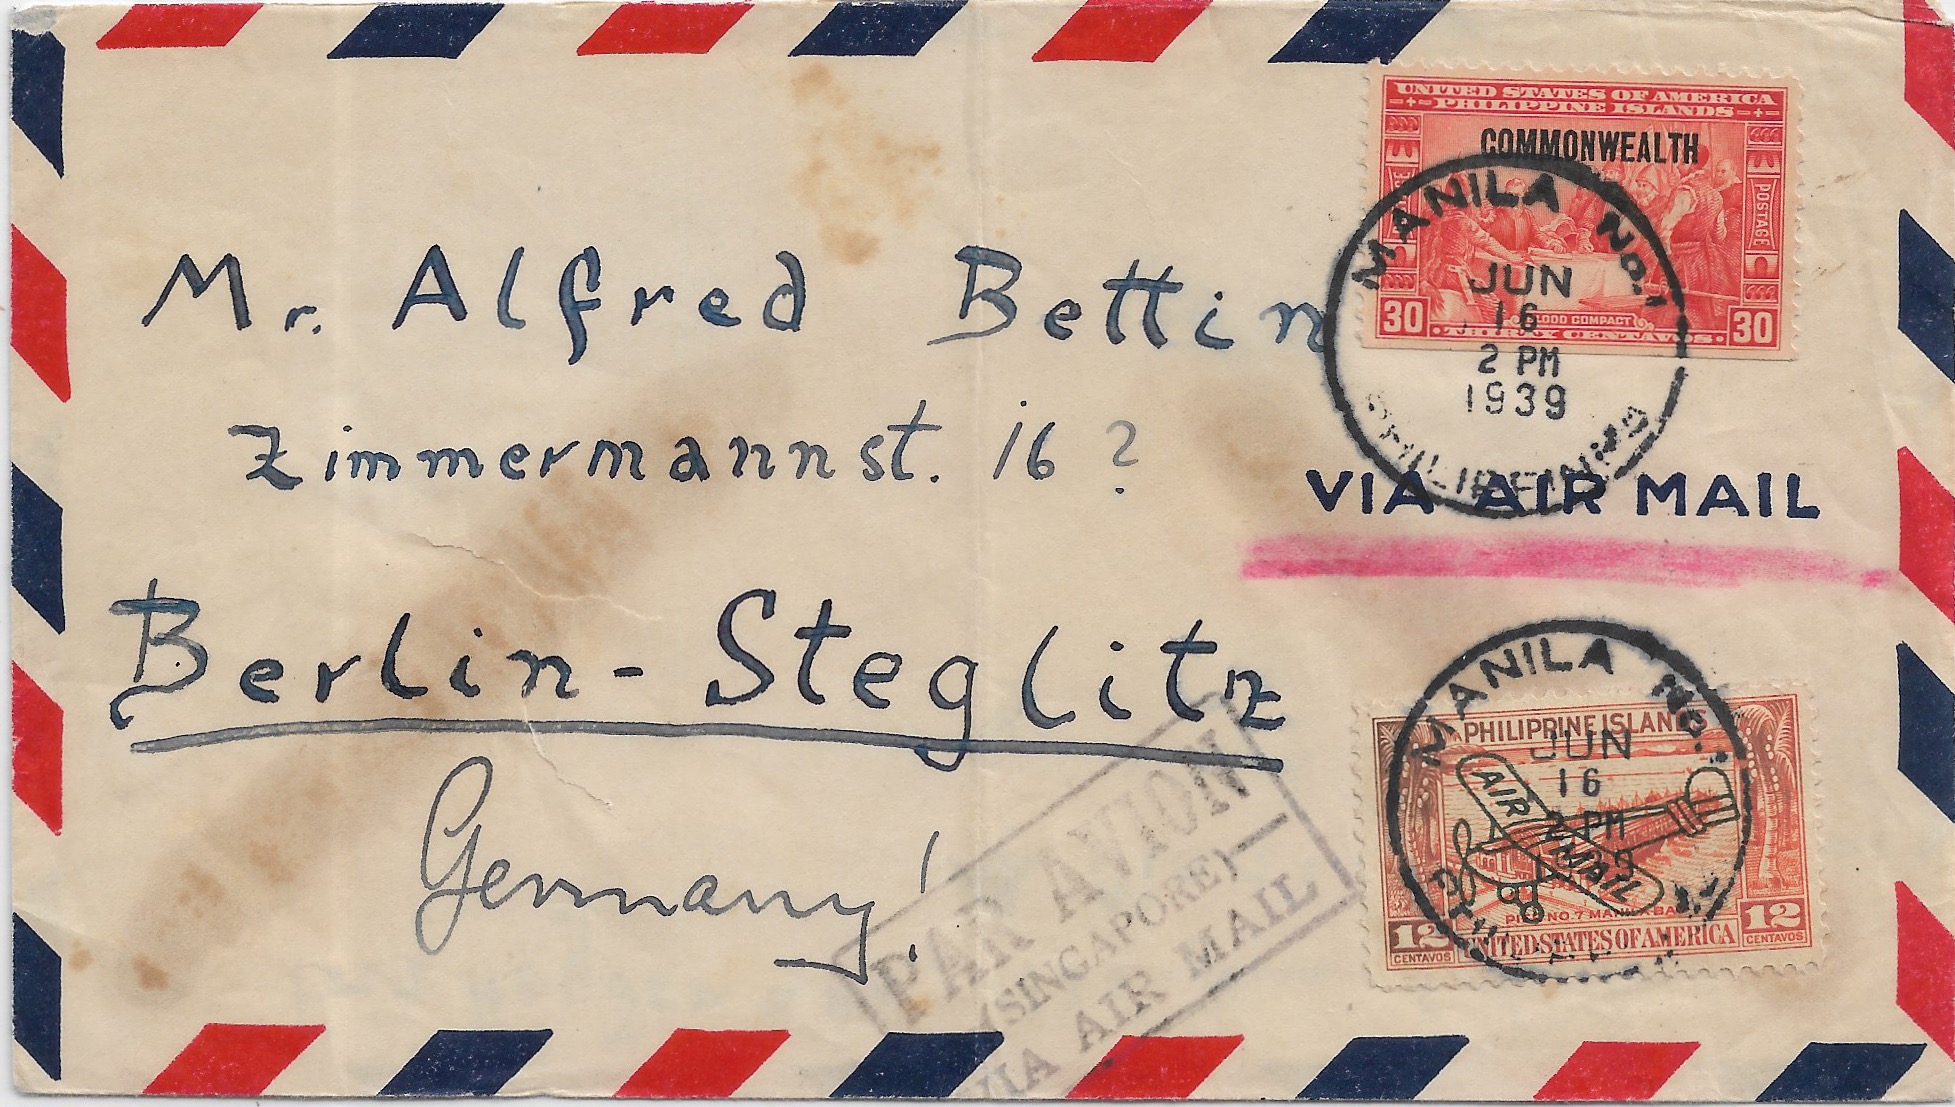 UNITED STATES OF AMERICA
PHILIPPINE ISLANDS
COMMONWEALTH
POSTAGE
30 BLOOD COMPACT 30
THIRTY CENTAVOS
MANILA No. 1
JUN
16
2 PM
1939
PHILIPPINES
Mr. Alfred Bettin
Zimmermannst. 16 ?
VIA AIR MAIL
Berlin - Steglitz
Germany!
PAR AVION
(SINGAPORE)
VIA AIR MAIL
MANILA No. 1
JUN
16
2 PM
PHILIPPINE ISLANDS
AIR MAIL
PIER NO. 7 MANILA BAY
12 CENTAVOS UNITED STATES OF AMERICA 12 CENTAVOS